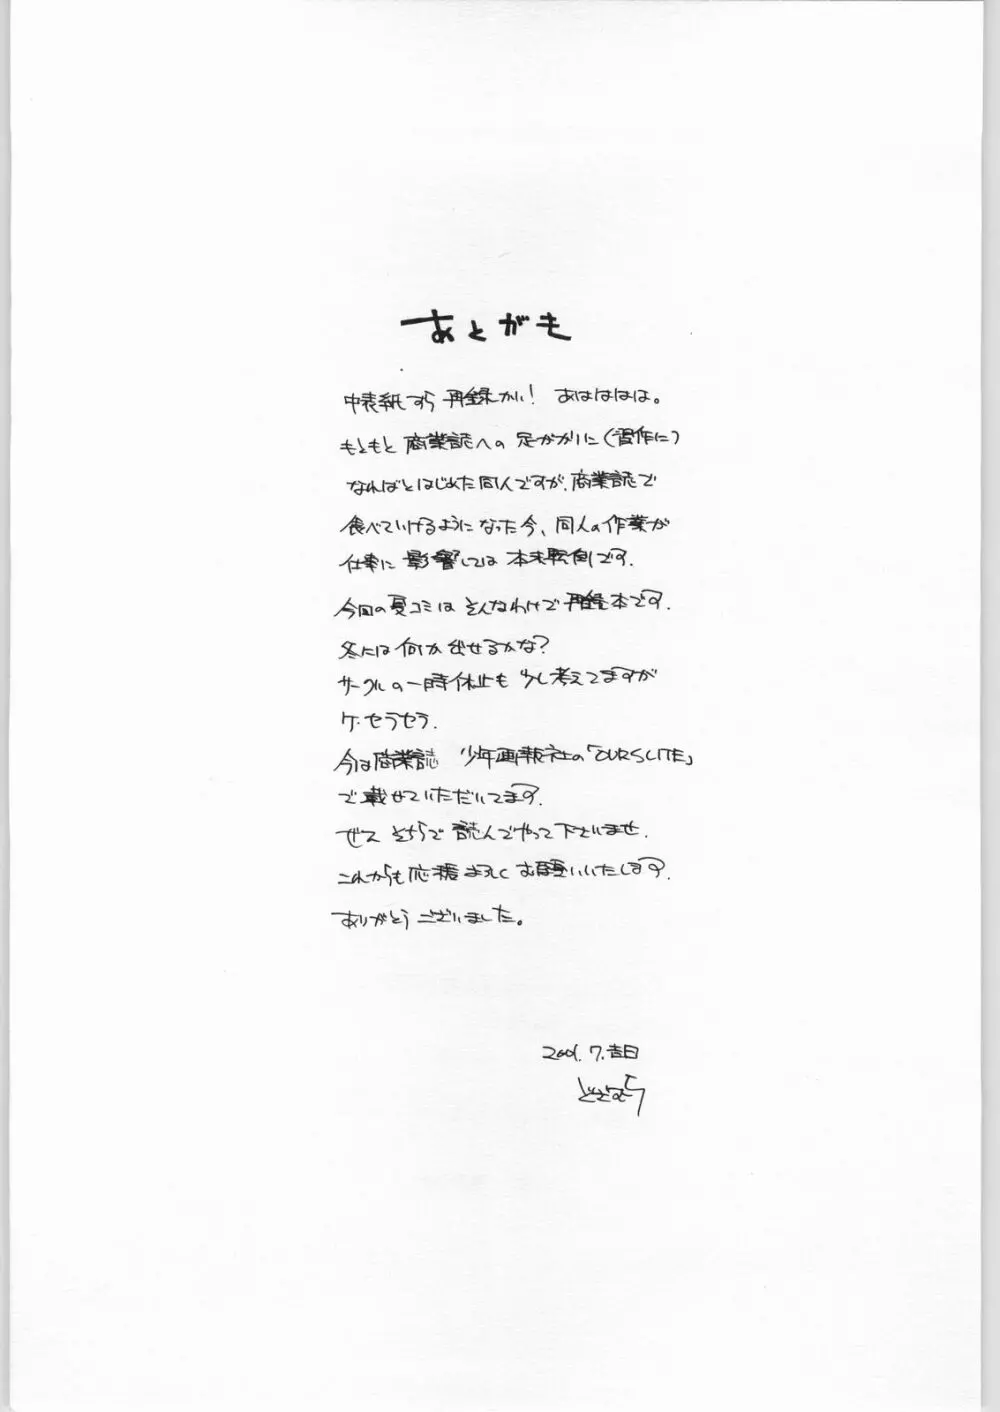 あとがき
中表紙すら再録かい! あははははは。
もともと商業誌への足がかりに(習作に)
なればとはじめた同人ですが、商業誌で
食べていけるようになった今、同人の作業が
仕事に影響しては本末転倒です.
今回の夏コミはそんなわけで再録本です.
冬には何か出せるかな?
サークルの一時休止も少し考えてますが
ケ・セラセラ.
今は商業誌 少年画報社の「OURSLITE」
で載せていただいてます.
ぜスそちらで読んでやって下さいませ.
これからも応援よろしくお願いいたします.
ありがとうございました。
2001. 7. 吉日